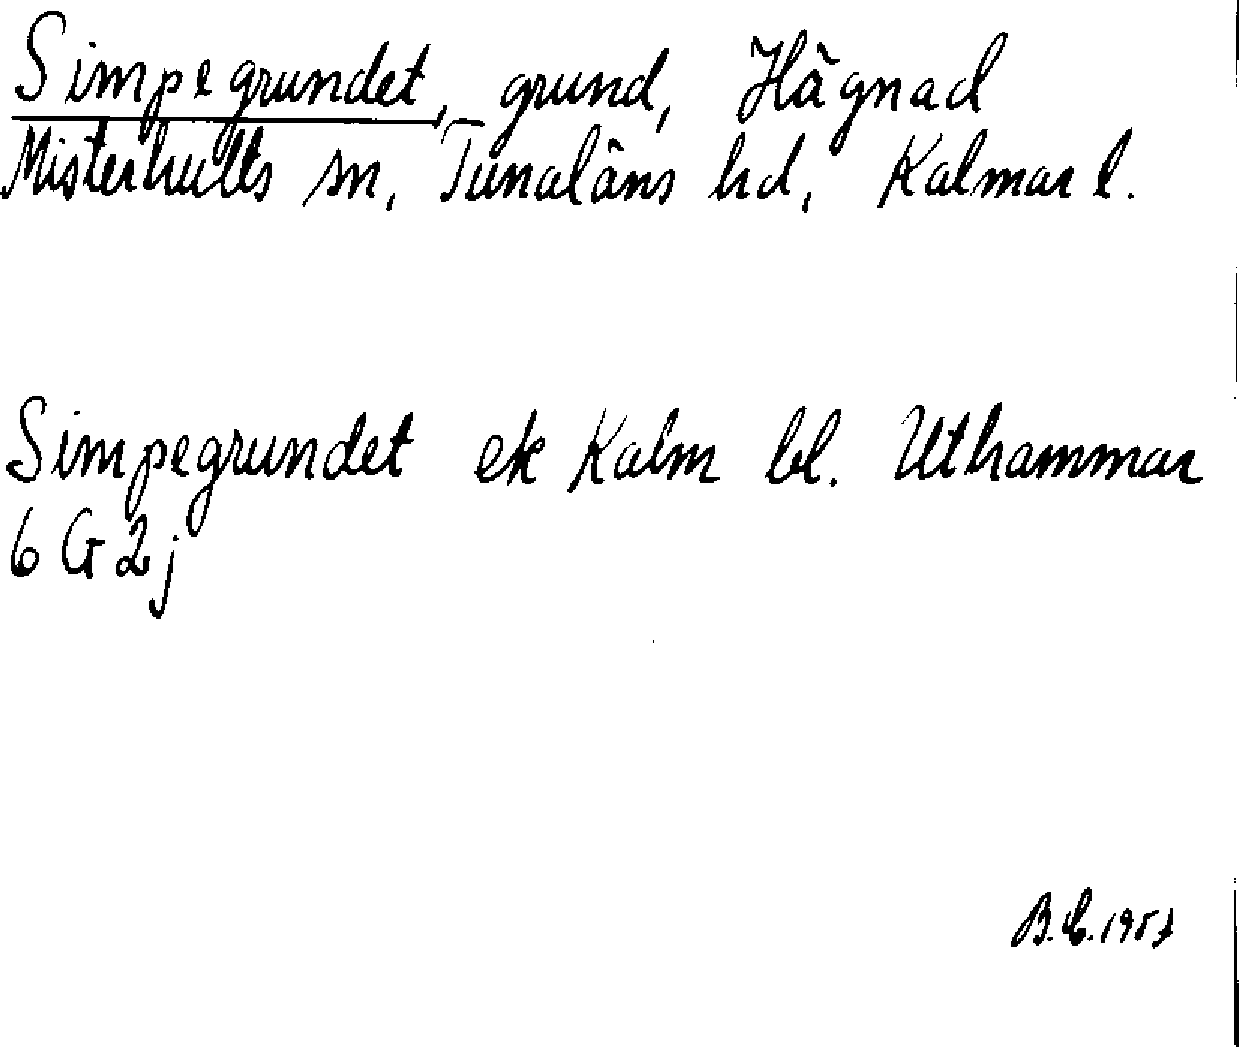 Simpegrundet, grund, Hägnad
Misterhults sn, Tunaläns hd, Kalmar l.
Simpegrundet ek Kalm bl. Uthammar
6 G 2 j